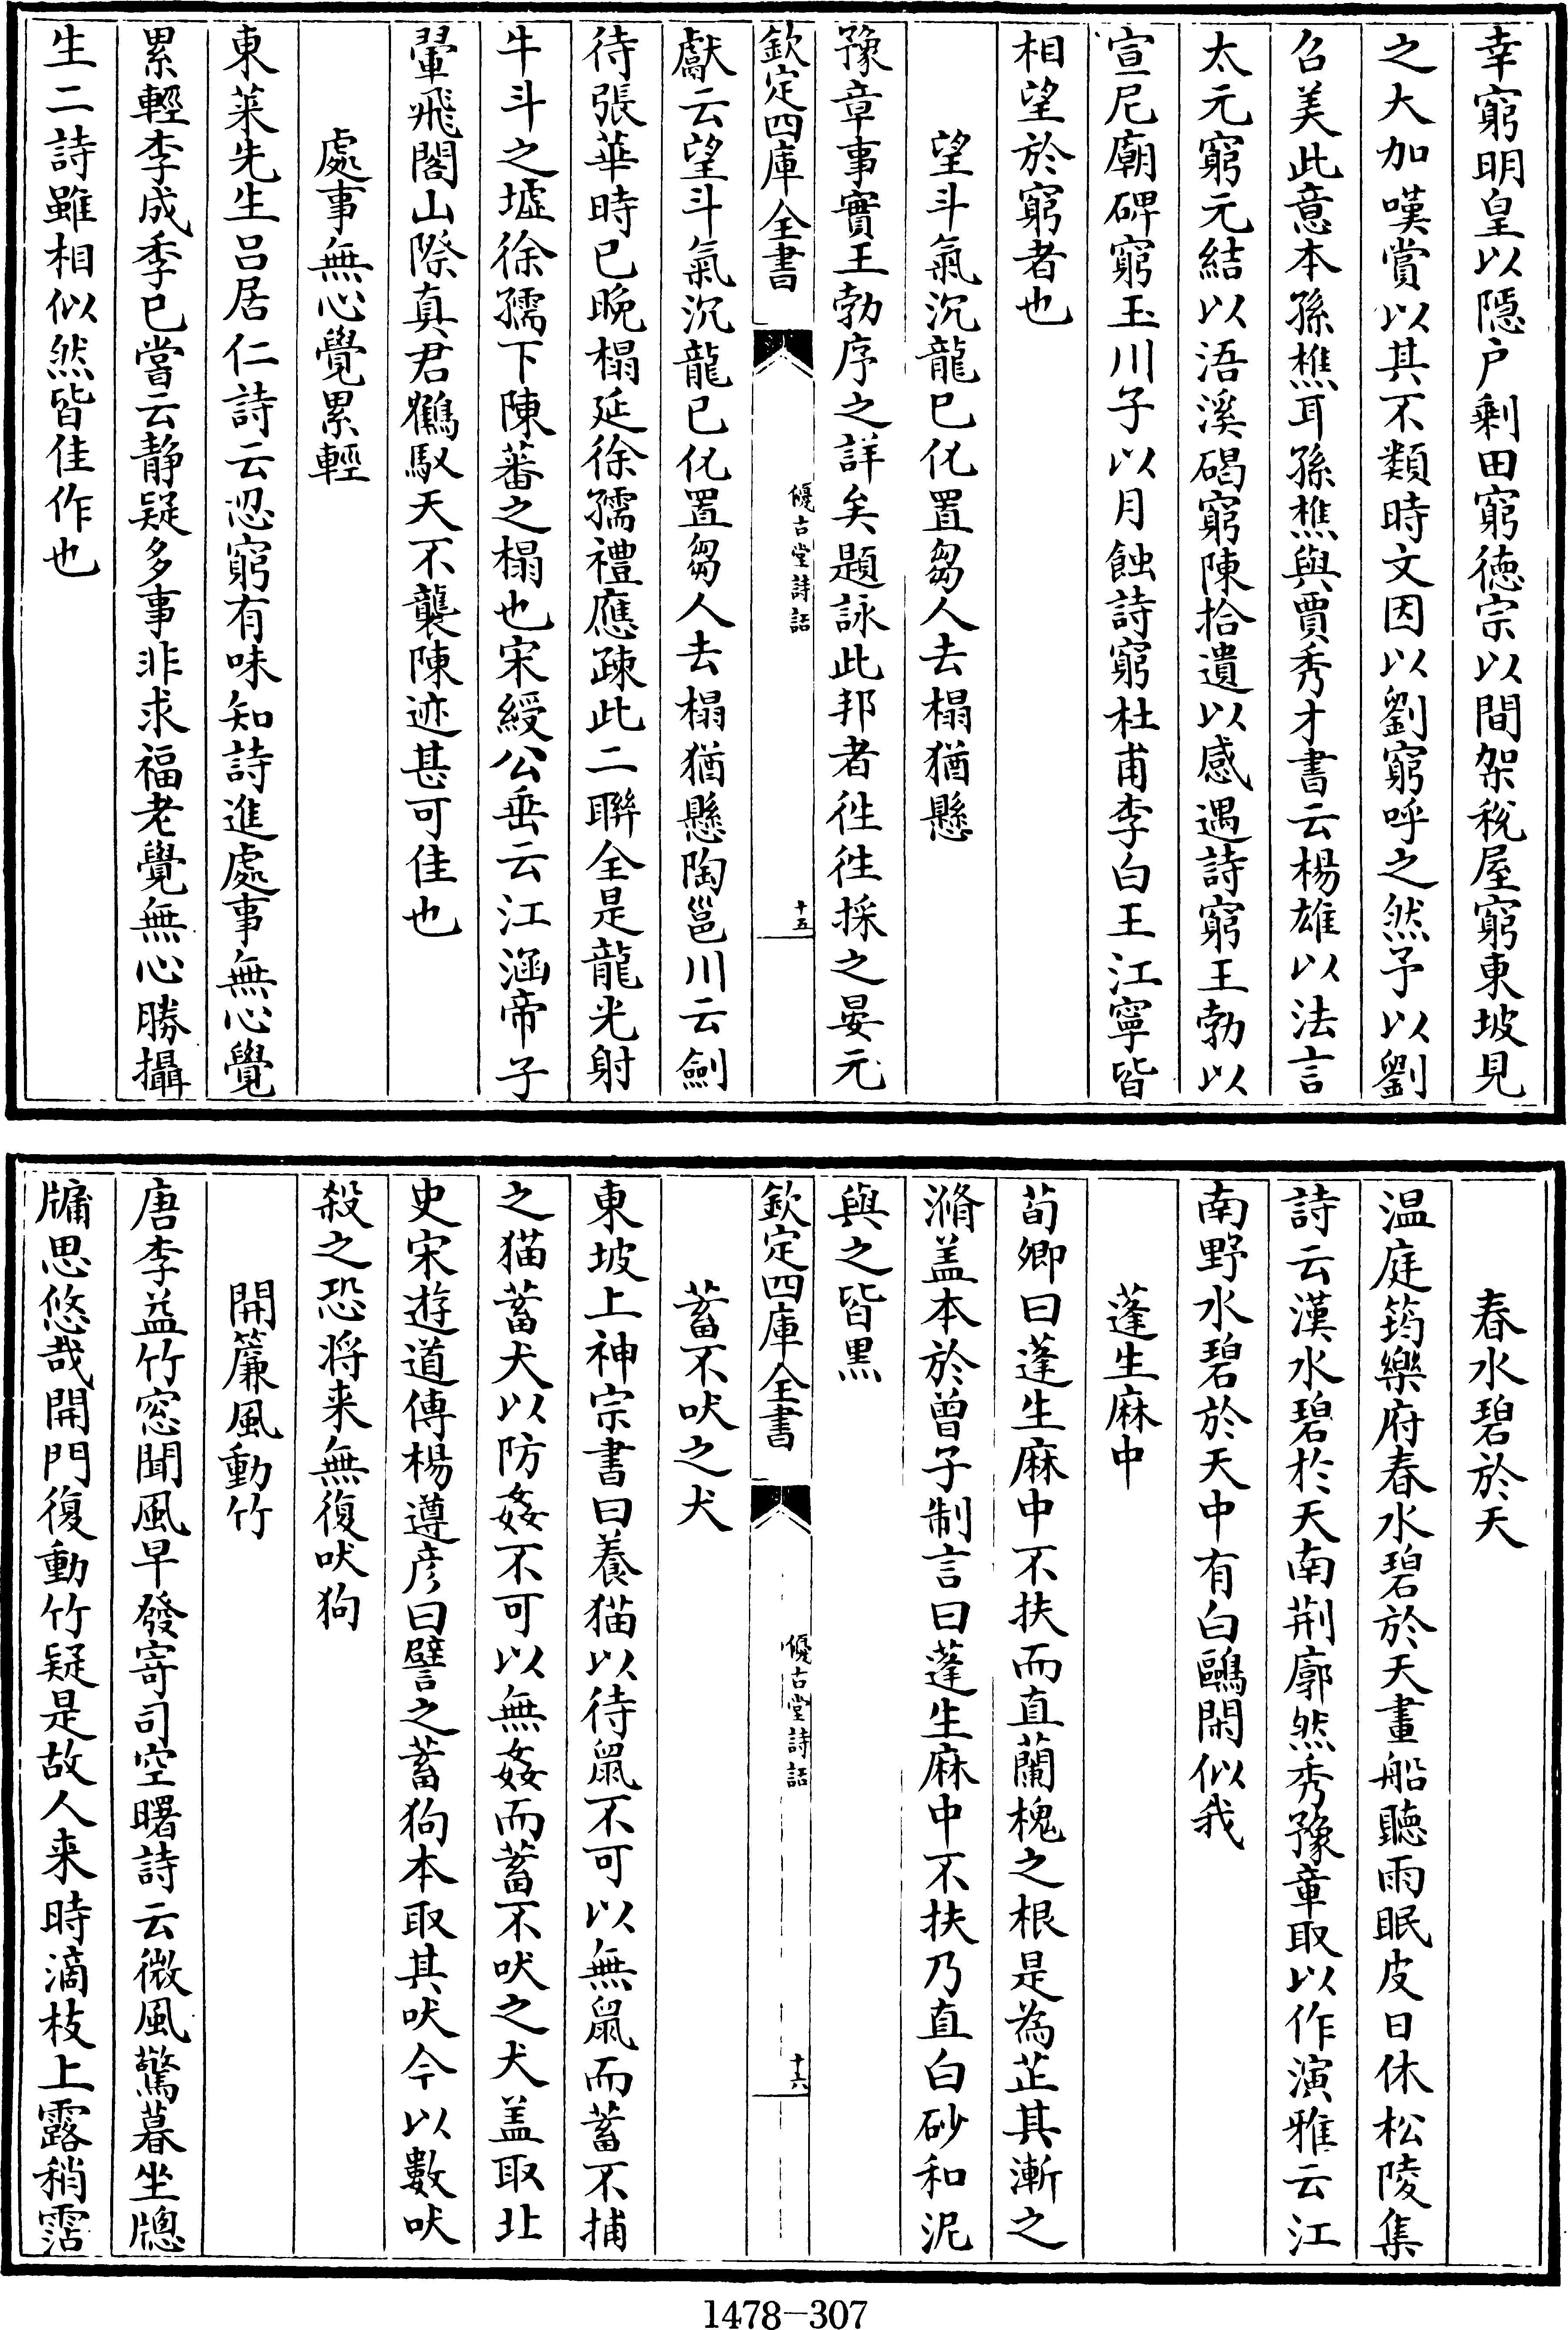 幸窮明皇以隱户剩田窮徳宗以間架稅屋窮東坡見
之大加嘆賞以其不類時文因以劉窮呼之然予以劉
召美此意本孫樵耳孫樵與賈秀才書云楊雄以法言
太元窮元結以浯溪碣窮陳拾遺以感遇詩窮王勃以
宣尼廟碑窮玉川子以月蝕詩窮杜甫李白王江寧皆
相望於窮者也
望斗氣沉龍已化置芻人去榻猶懸
豫章事實王勃序之詳矣題詠此邦者徃徃採之晏元
欽定四庫全書
優古堂詩話
十五
獻云望斗氣沉龍已化置芻人去榻猶懸陶邕川云劍
待張華時已晚榻延徐孺禮應疎此二聯全是龍光射
牛斗之墟徐孺下陳蕃之榻也宋綬公垂云江涵帝子
翬飛閣山際真君鶴馭天不襲陳迹甚可佳也
處事無心覺累輕
東萊先生吕居仁詩云忍窮有味知詩進處事無心覺
累輕李成季已嘗云静疑多事非求福老覺無心勝攝
生二詩雖相似然皆佳作也
春水碧於天
温庭筠樂府春水碧於天畫船聽雨眠皮日休松陵集
詩云漢水碧於天南荆廓然秀豫章取以作演雅云江
南野水碧於天中有白鷗閑似我
蓬生麻中
荀卿曰蓬生麻中不扶而直蘭槐之根是為芷其漸之
滫盖本於曾子制言曰蓬生麻中不扶乃直白砂和泥
與之皆黑
欽定四庫全書
優古堂詩話
十六
蓄不吠之犬
東坡上神宗書曰養猫以待鼠不可以無鼠而蓄不捕
之猫蓄犬以防姦不可以無姦而蓄不吠之犬盖取北
史宋遊道傳楊遵彦曰譬之蓄狗本取其吠今以數吠
殺之恐將来無復吠狗
開簾風動竹
唐李益竹窓聞風早發寄司空曙詩云微風驚暮坐牕
牖思悠哉開門復動竹疑是故人来時滴枝上露稍霑
1478-307